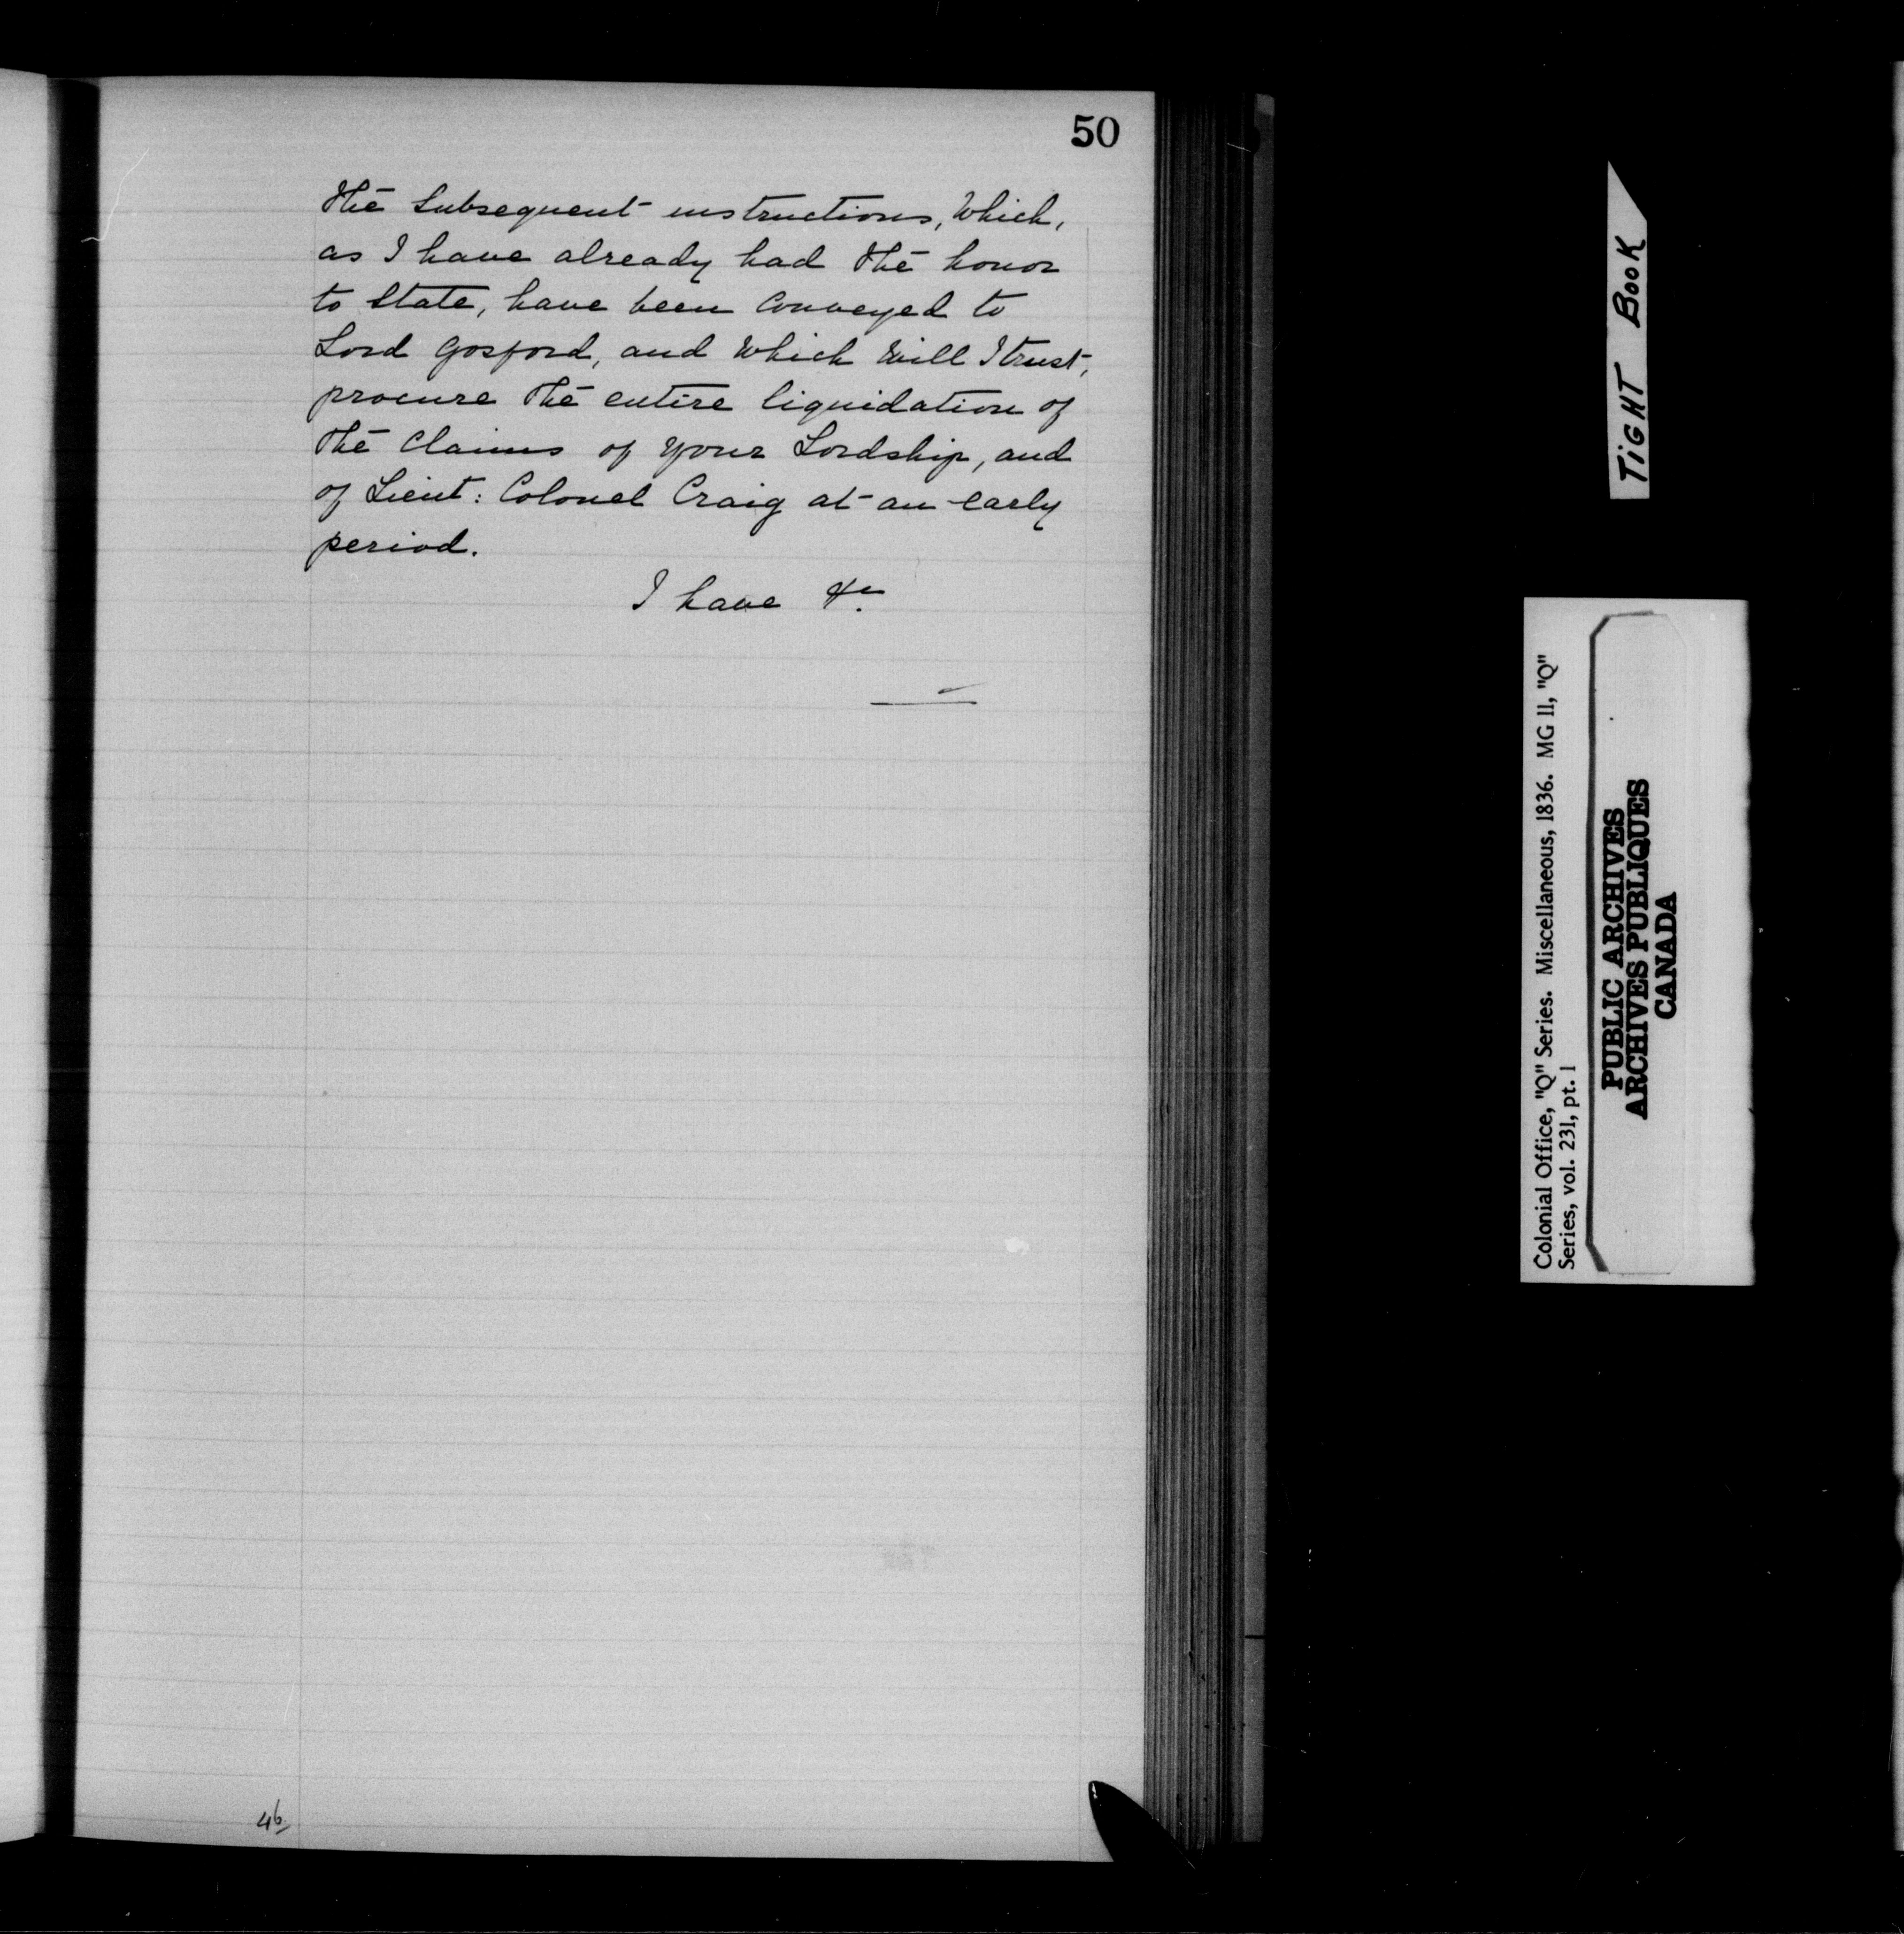 50
the Subsequent instructions, Which,
as I have already had the honor
to State, have been Conveyed to
Lord Gosford, and Which Will I trust,
procure the entire liquidation of
the Claims of your Lordship, and
of Lieut: Colonel Craig at an early
period.
I have &c
46
TIGHT BOOK
Colonial Office, "Q" Series. Miscellaneous, 1836. MG 11, "Q"
Series, vol. 231, pt. 1
PUBLIC ARCHIVES
ARCHIVES PUBLIQUES
CANADA